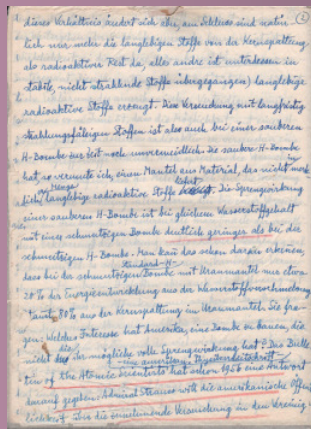 dieses Verhältnis ändert sich aber, am Schluss sind natür (2)
lich nur mehr die langlebigen Stoffe von der Kernspaltung
als radioaktiver Rest da, alles andre ist unterdessen in
stabile, nicht strahlende Stoffe übergegangen) langlebige
radioaktive Stoffe erzeugt. Die Verseuchung mit langfristig
strahlungsfähigen Stoffen ist also auch bei einer sauberen
H-Bombe zur Zeit noch unvermeidlich. Die saubere H-Bombe
hat, so vermute ich, einen Mantel aus Material, das nicht in
Menge langlebig radioaktive Stoffe liefert. Die Sprengwirkung
einer sauberen H-Bombe ist bei gleichem Wasserstoffgehalt
mit einer schmutzigen Bombe deutlich geringer als bei die
schmutzigen H-Bombe. Man kann das schon daran erkennen,
Standard-H-
dass bei der schmutzigen Bombe mit Uranmantel nur etwa
20% der Energieentwicklung aus der Wasserstoffverschmelzung
stamt, 80% aus der Kernspaltung im Uranmantel. Sie fra
gen: Welches Interesse hat Amerika, eine Bombe zu bauen, die
nicht die ihr mögliche volle Sprengwirkung hat? Das Bulle
tin of the Atomic Scientists hat schon 1956 eine Antwort
darauf gegeben: Admiral Strauss will die amerikanische Öffent
lichkeit über die zunehmende Verseuchung in den Vereinig